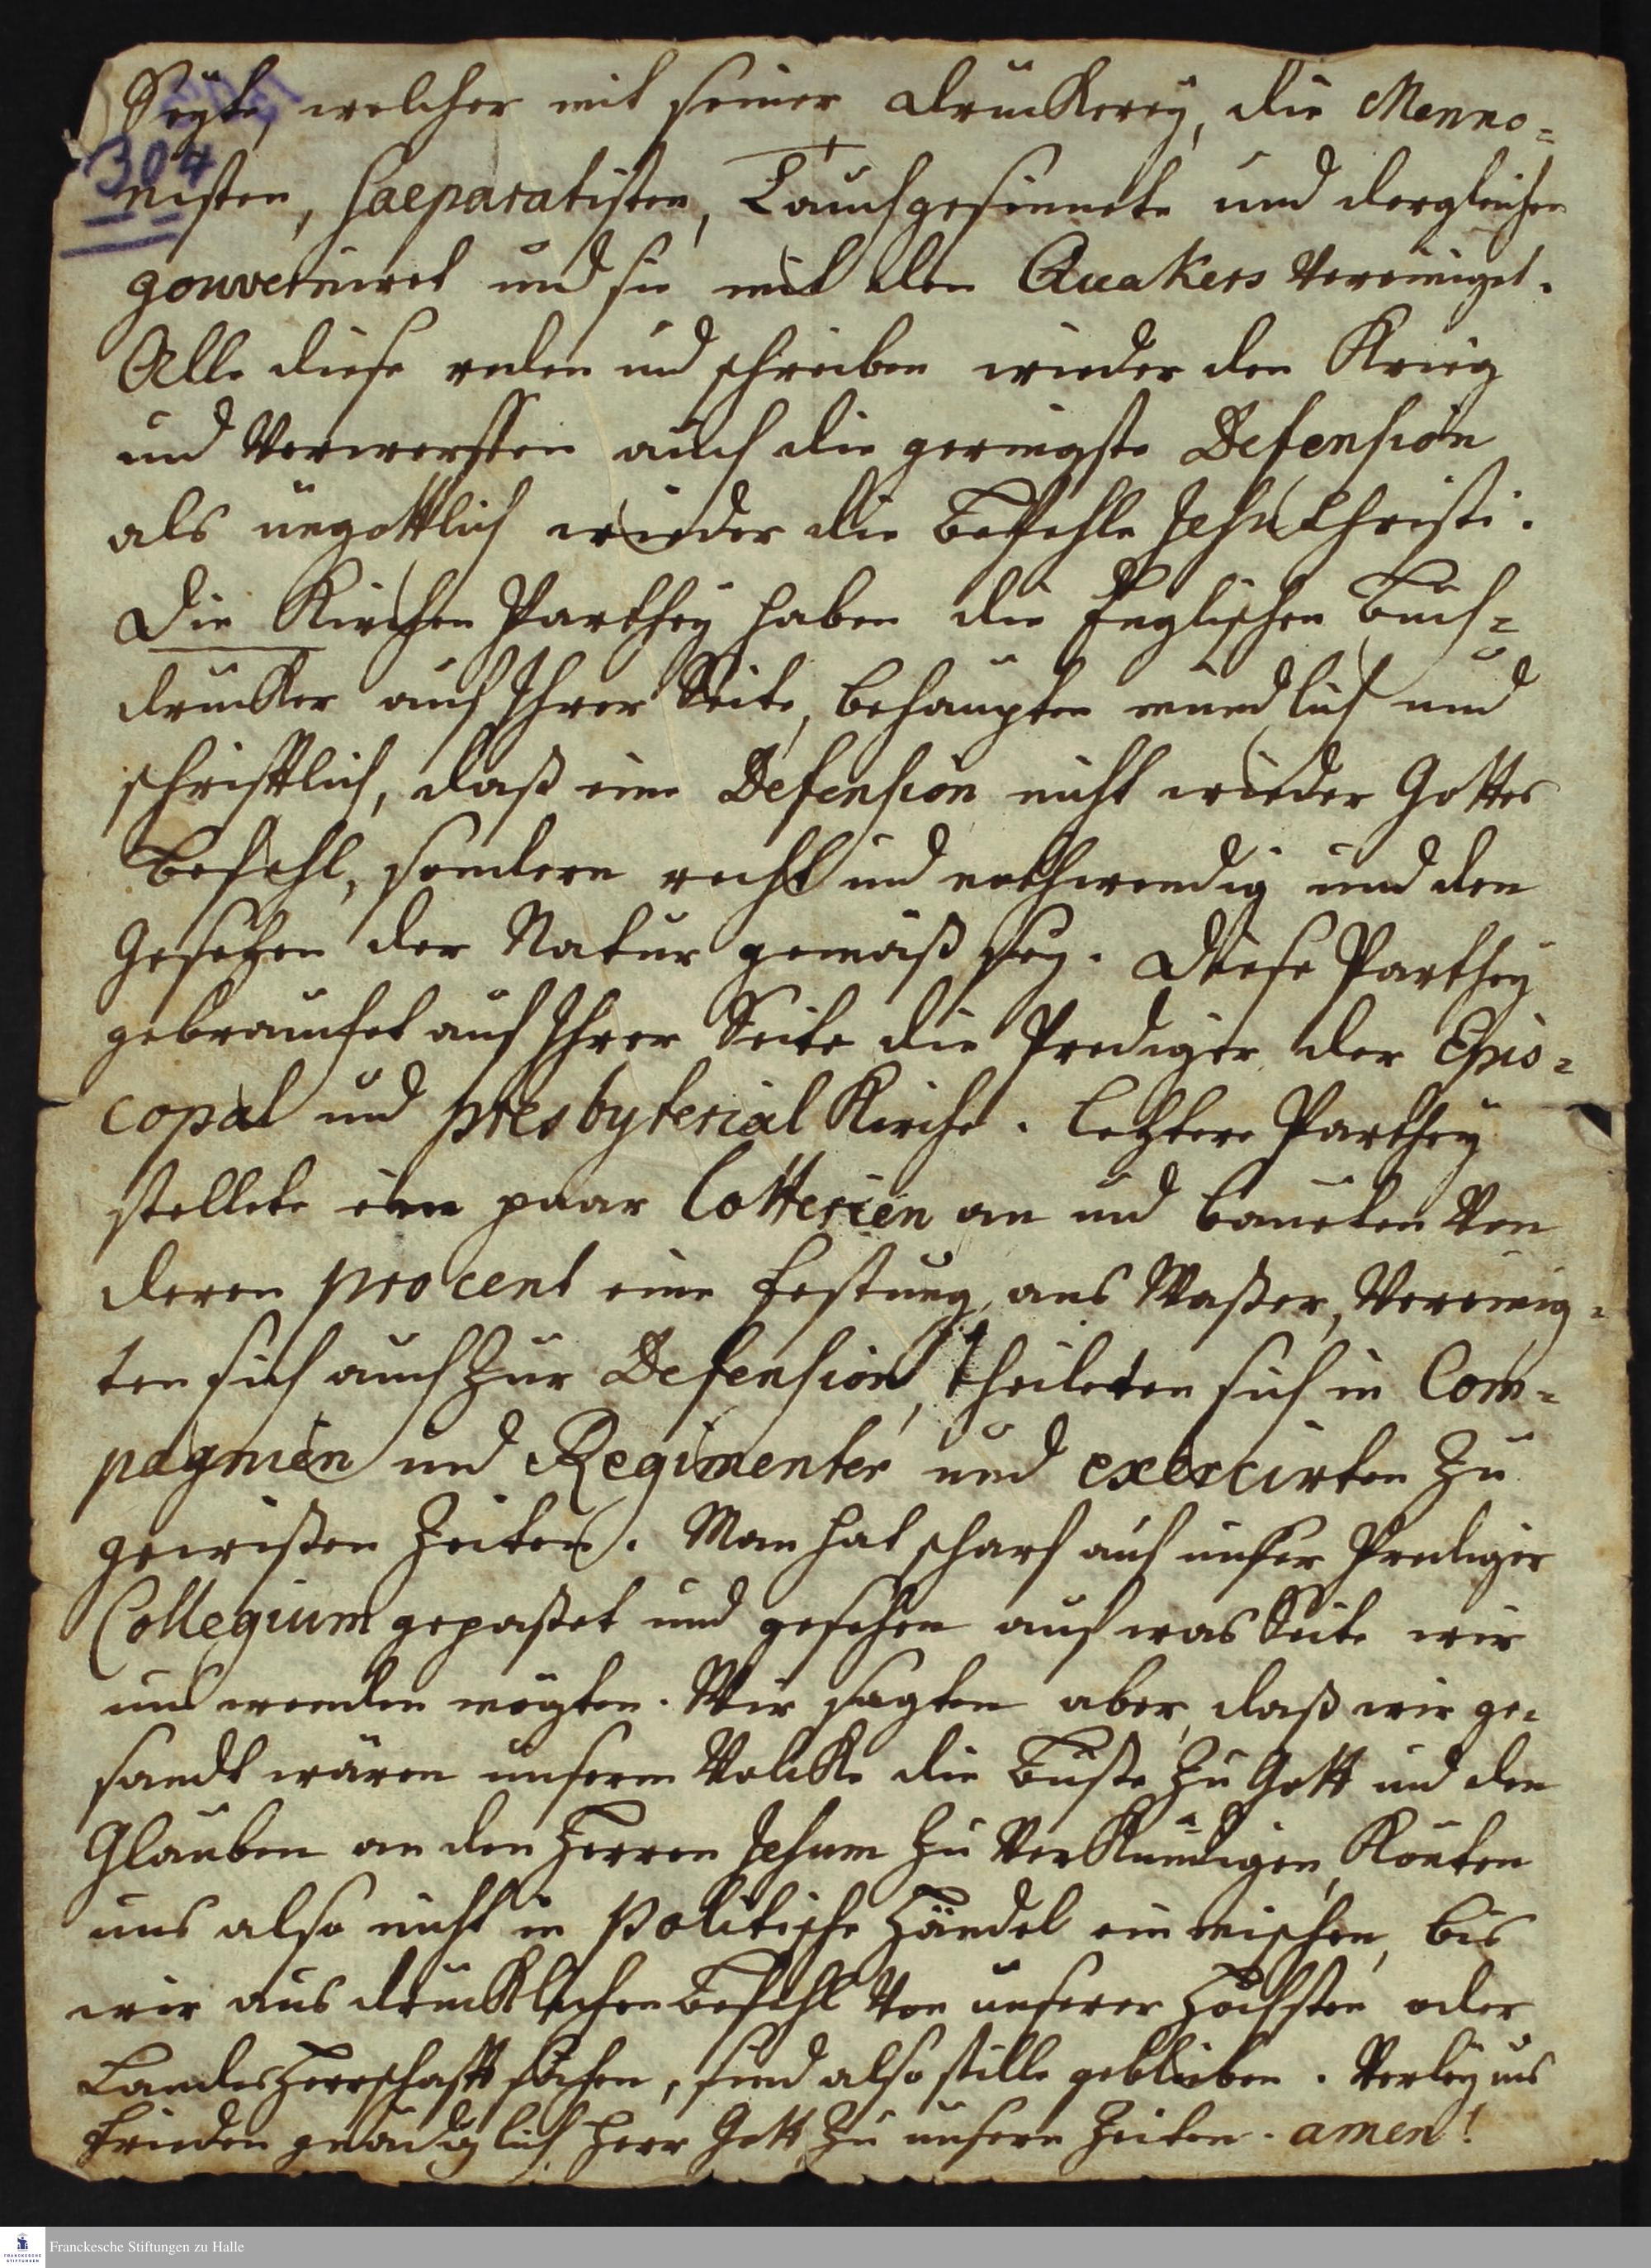 304
Seyte, welcher mit seiner Druckerey, die Menno=
nisten, Saeparatisten, Tauchgesinnete und dergleichen
gouverniret und sie mit den Quakers vereiniget.
Alle diese reden und schreiben wieder den Krieg
und verwerffen auch die geringste Defension
als ungöttlich wieder die Befehle Jesu Christi.
Die Kirchen Parthey haben die Englischen Buch=
drucker auf Ihrer Seite, behaupten mündlich und
schrifftlich, daß eine Defension nicht wieder Gottes
Befehl, sondern recht und nothwendig und den
Gesetzen der Natur gemäß sey. Diese Parthey
gebrauchet auf Ihrer Seite die Prediger der Epis=
copal und presbyterial Kirche. Letztere Parthey
stellete ein paar Lotterien an und baueten von
deren procent eine Festung ans Waßer, vereinig=
ten sich auch zur Defension, theileten sich in Com=
pagnien und Regimenter und exercirten zu
gewißen Zeiten. Man hat scharf auf unser Prediger
Collegium gepaßet und gesehen auf was Seite wir
uns wenden mögten. Wir sagten aber, daß wir ge=
sandt wären unserm Volcke die Buße zu Gott und den
Glauben an den Herren Jesum zu verkündigen, könten
uns also nicht in Politische Händel ein mischen, bis
wir ausdrücklichen Befehl von unserer Höchsten oder
Landes Herrschafft sähen, sind also stille geblieben. Verley uns
Frieden gnädiglich Herr Gott zu unsern Zeiten. amen!
Franckesche Stiftungen zu Halle